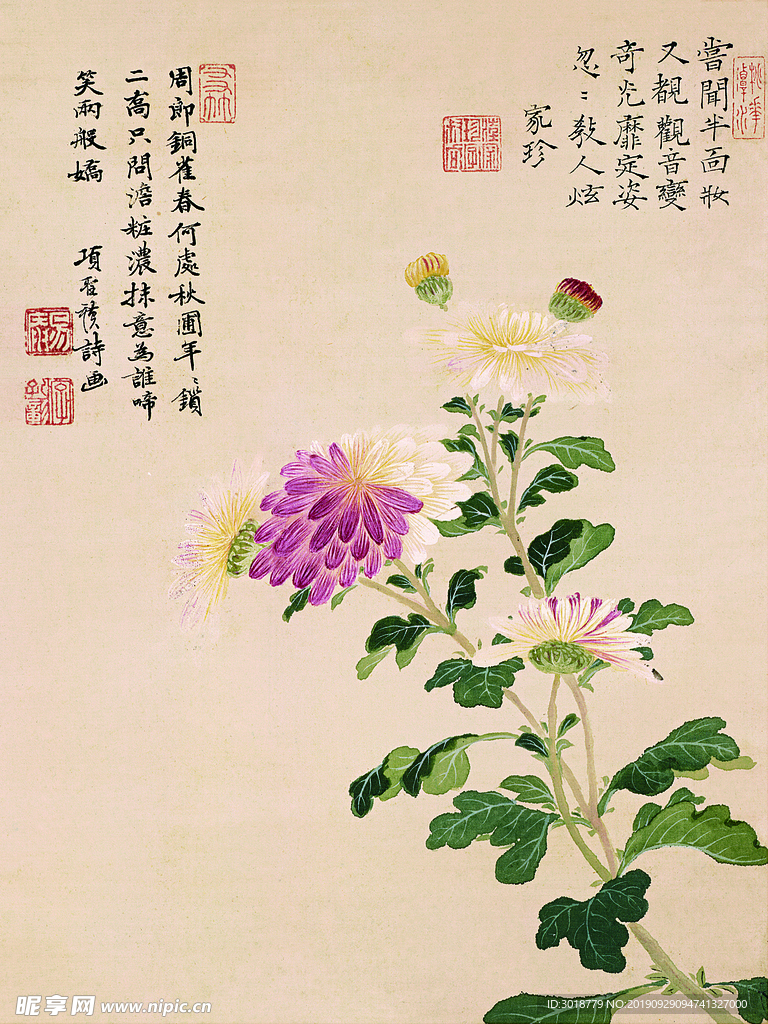 嘗聞半面妝
又覩觀音變
奇光靡定姿
忽〻教人炫
家珍
周郎銅雀春何處秋圃年〻鎖
二喬只問澹粧濃抹意為誰啼
笑兩般嬌 項聖謨詩画
昵享网 www.nipic.cn
ID:3018779 NO:20190929094741327000